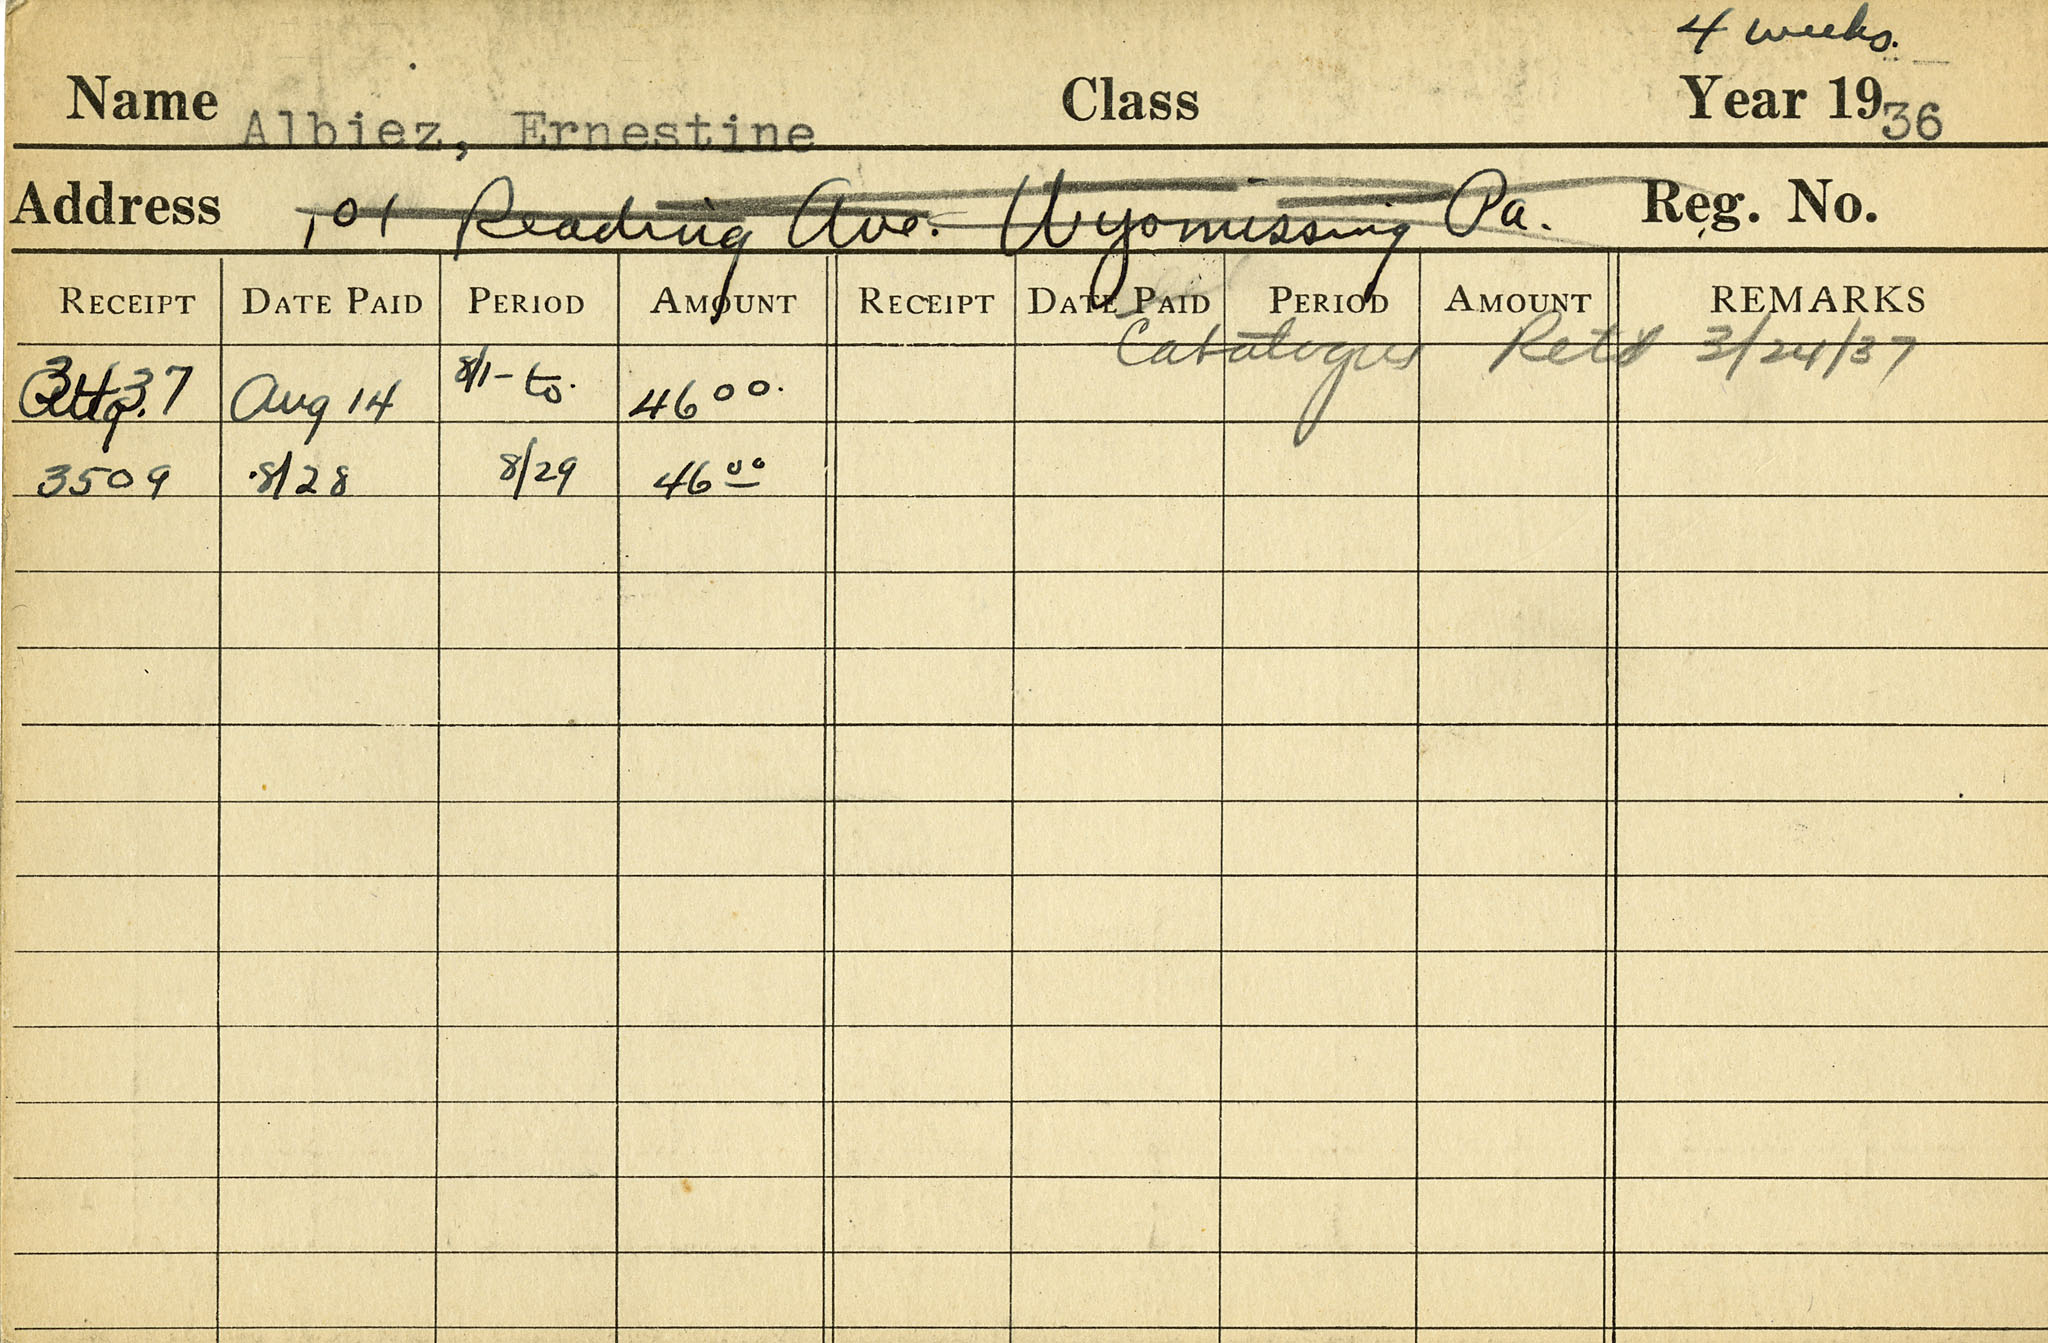 4 weeks.
Name Albiez, Ernestine Class Year 1936
Address 101 Reading Ave. Wyomissing Pa. Reg. No.
RECEIPT DATE PAID PERIOD AMOUNT RECEIPT DATE PAID PERIOD AMOUNT REMARKS
Catalogues Retd 3/24/37
3437 Aug 14 8/1- to. 46 00.
3509 8/28 8/29 46 00